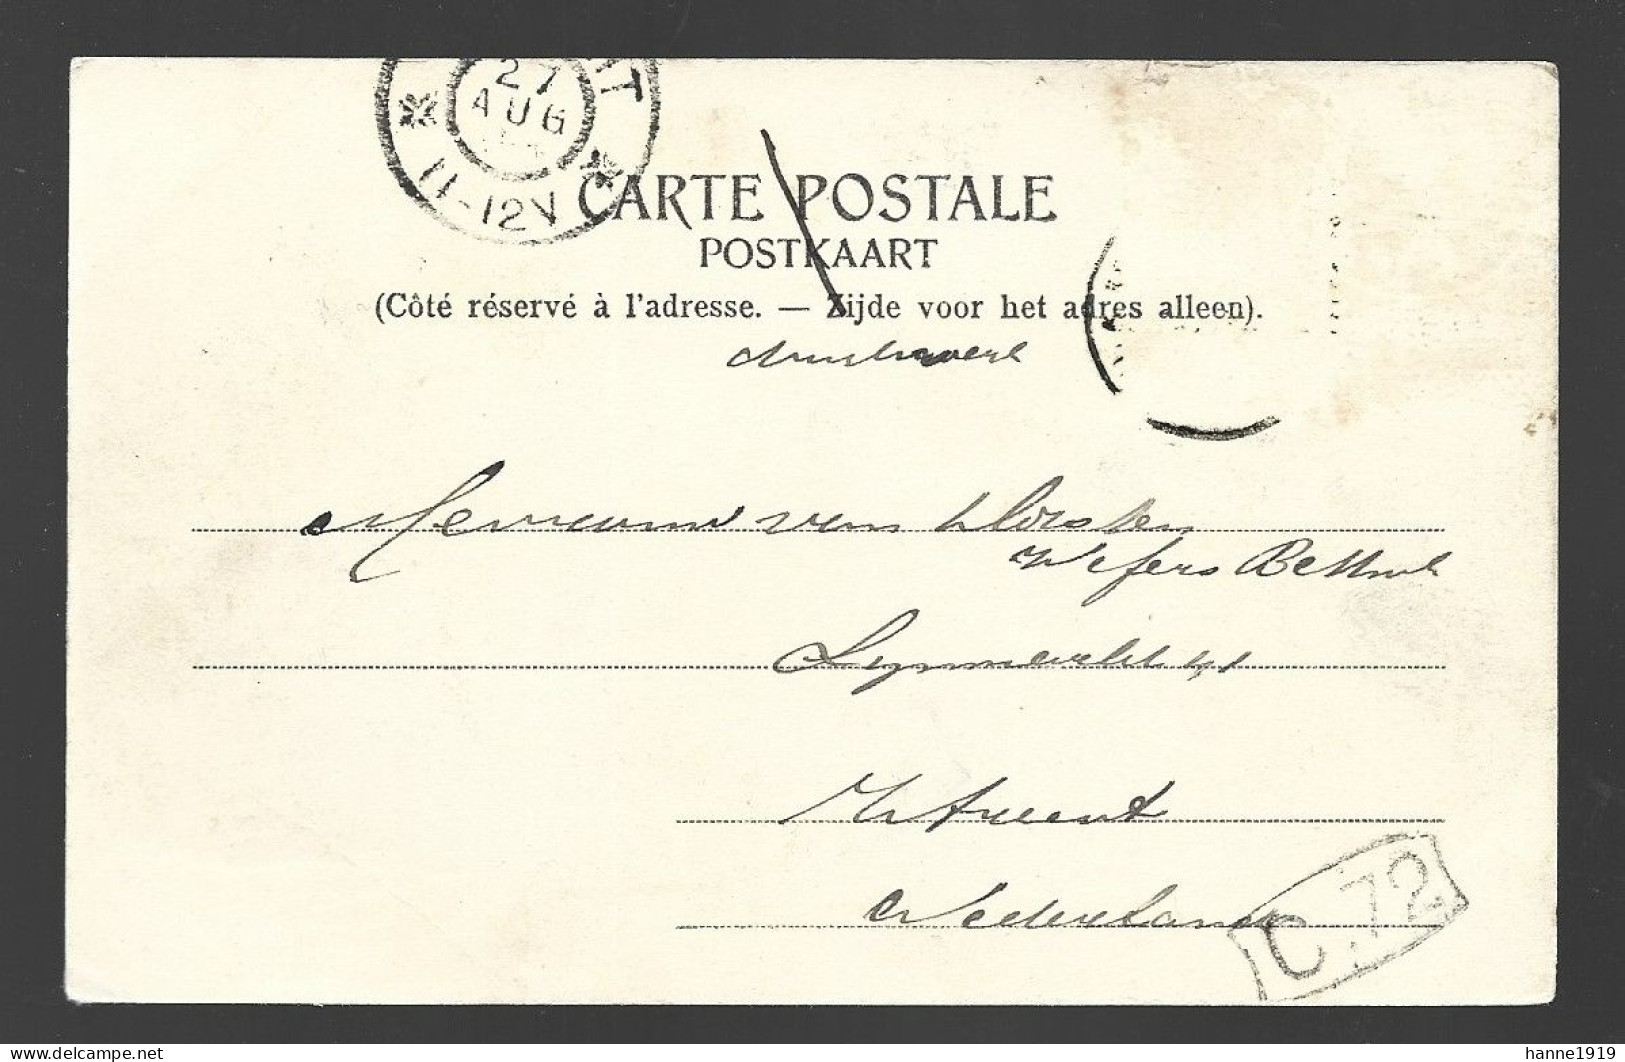 27
AUG
11-12V
CARTE POSTALE
POSTKAART
(Côté réservé à l'adresse. — Zijde voor het adres alleen).
Mevrouw van
Wefers Bettink
Utrecht
Nederland
C.72
www.delcampe.net
hanne1919